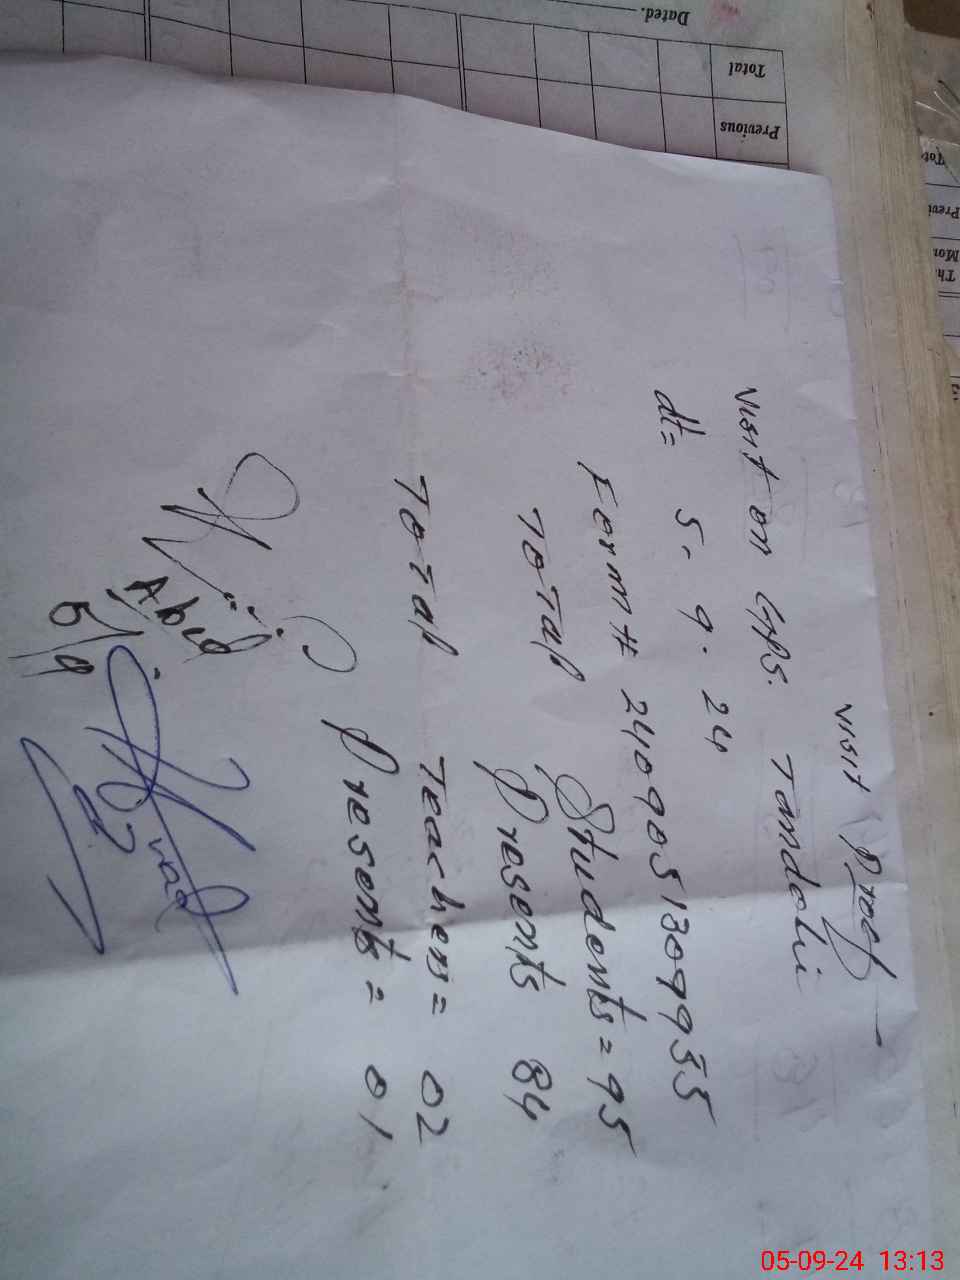 visit Proof
visit on GPS. Tandoli
dt= 5. 9. 24
Form # 24090513099355
Total Students = 95
Total Presents 84
Total Teachers = 02
Presents = 01
Abid
5/9
Dated.
Total
Previous
05-09-24 13:13